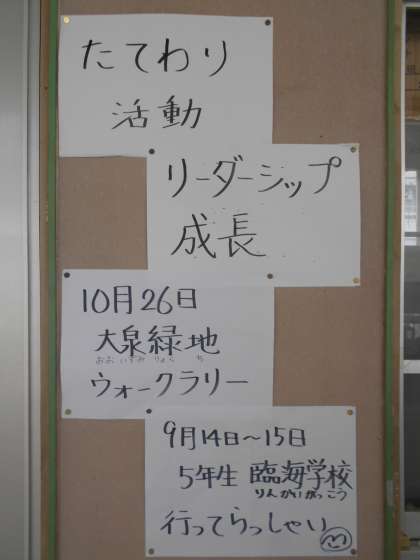 たてわり
活動
リーダーシップ
成長
10月26日
大泉緑地
おおいずみりょくち
ウォークラリー
9月14日～15日
5年生 臨海学校
りんかいがっこう
行ってらっしゃい